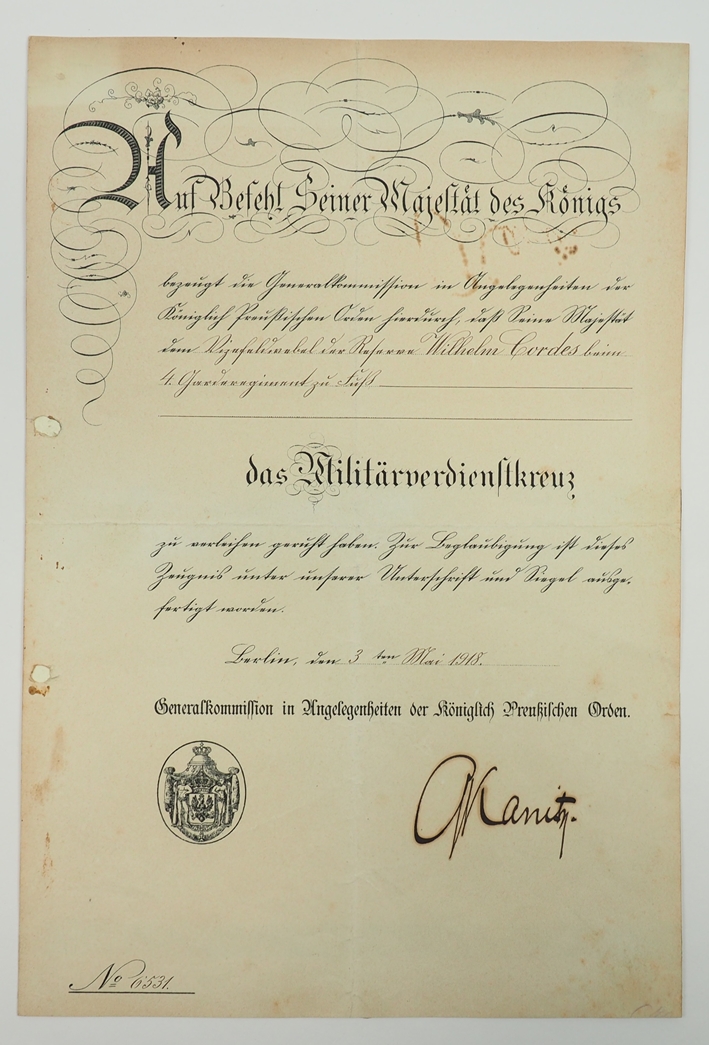 Auf Befehl Seiner Majestät des Königs
bezeugt die Generalkommission in Angelegenheiten der
Königlich Preußischen Orden hierdurch, daß Seine Majestät
dem Vizefeldwebel der Reserve Wilhelm Cordes beim
4. Garderegiment zu Fuß
das Militärverdienstkreuz
zu verleihen geruht haben. Zur Beglaubigung ist dieses
Zeugnis unter unserer Unterschrift und Siegel ausge-
fertigt worden.
Berlin, den 3ten Mai 1918.
Generalkommission in Angelegenheiten der Königlich Preußischen Orden.
GKanitz.
No 6531.